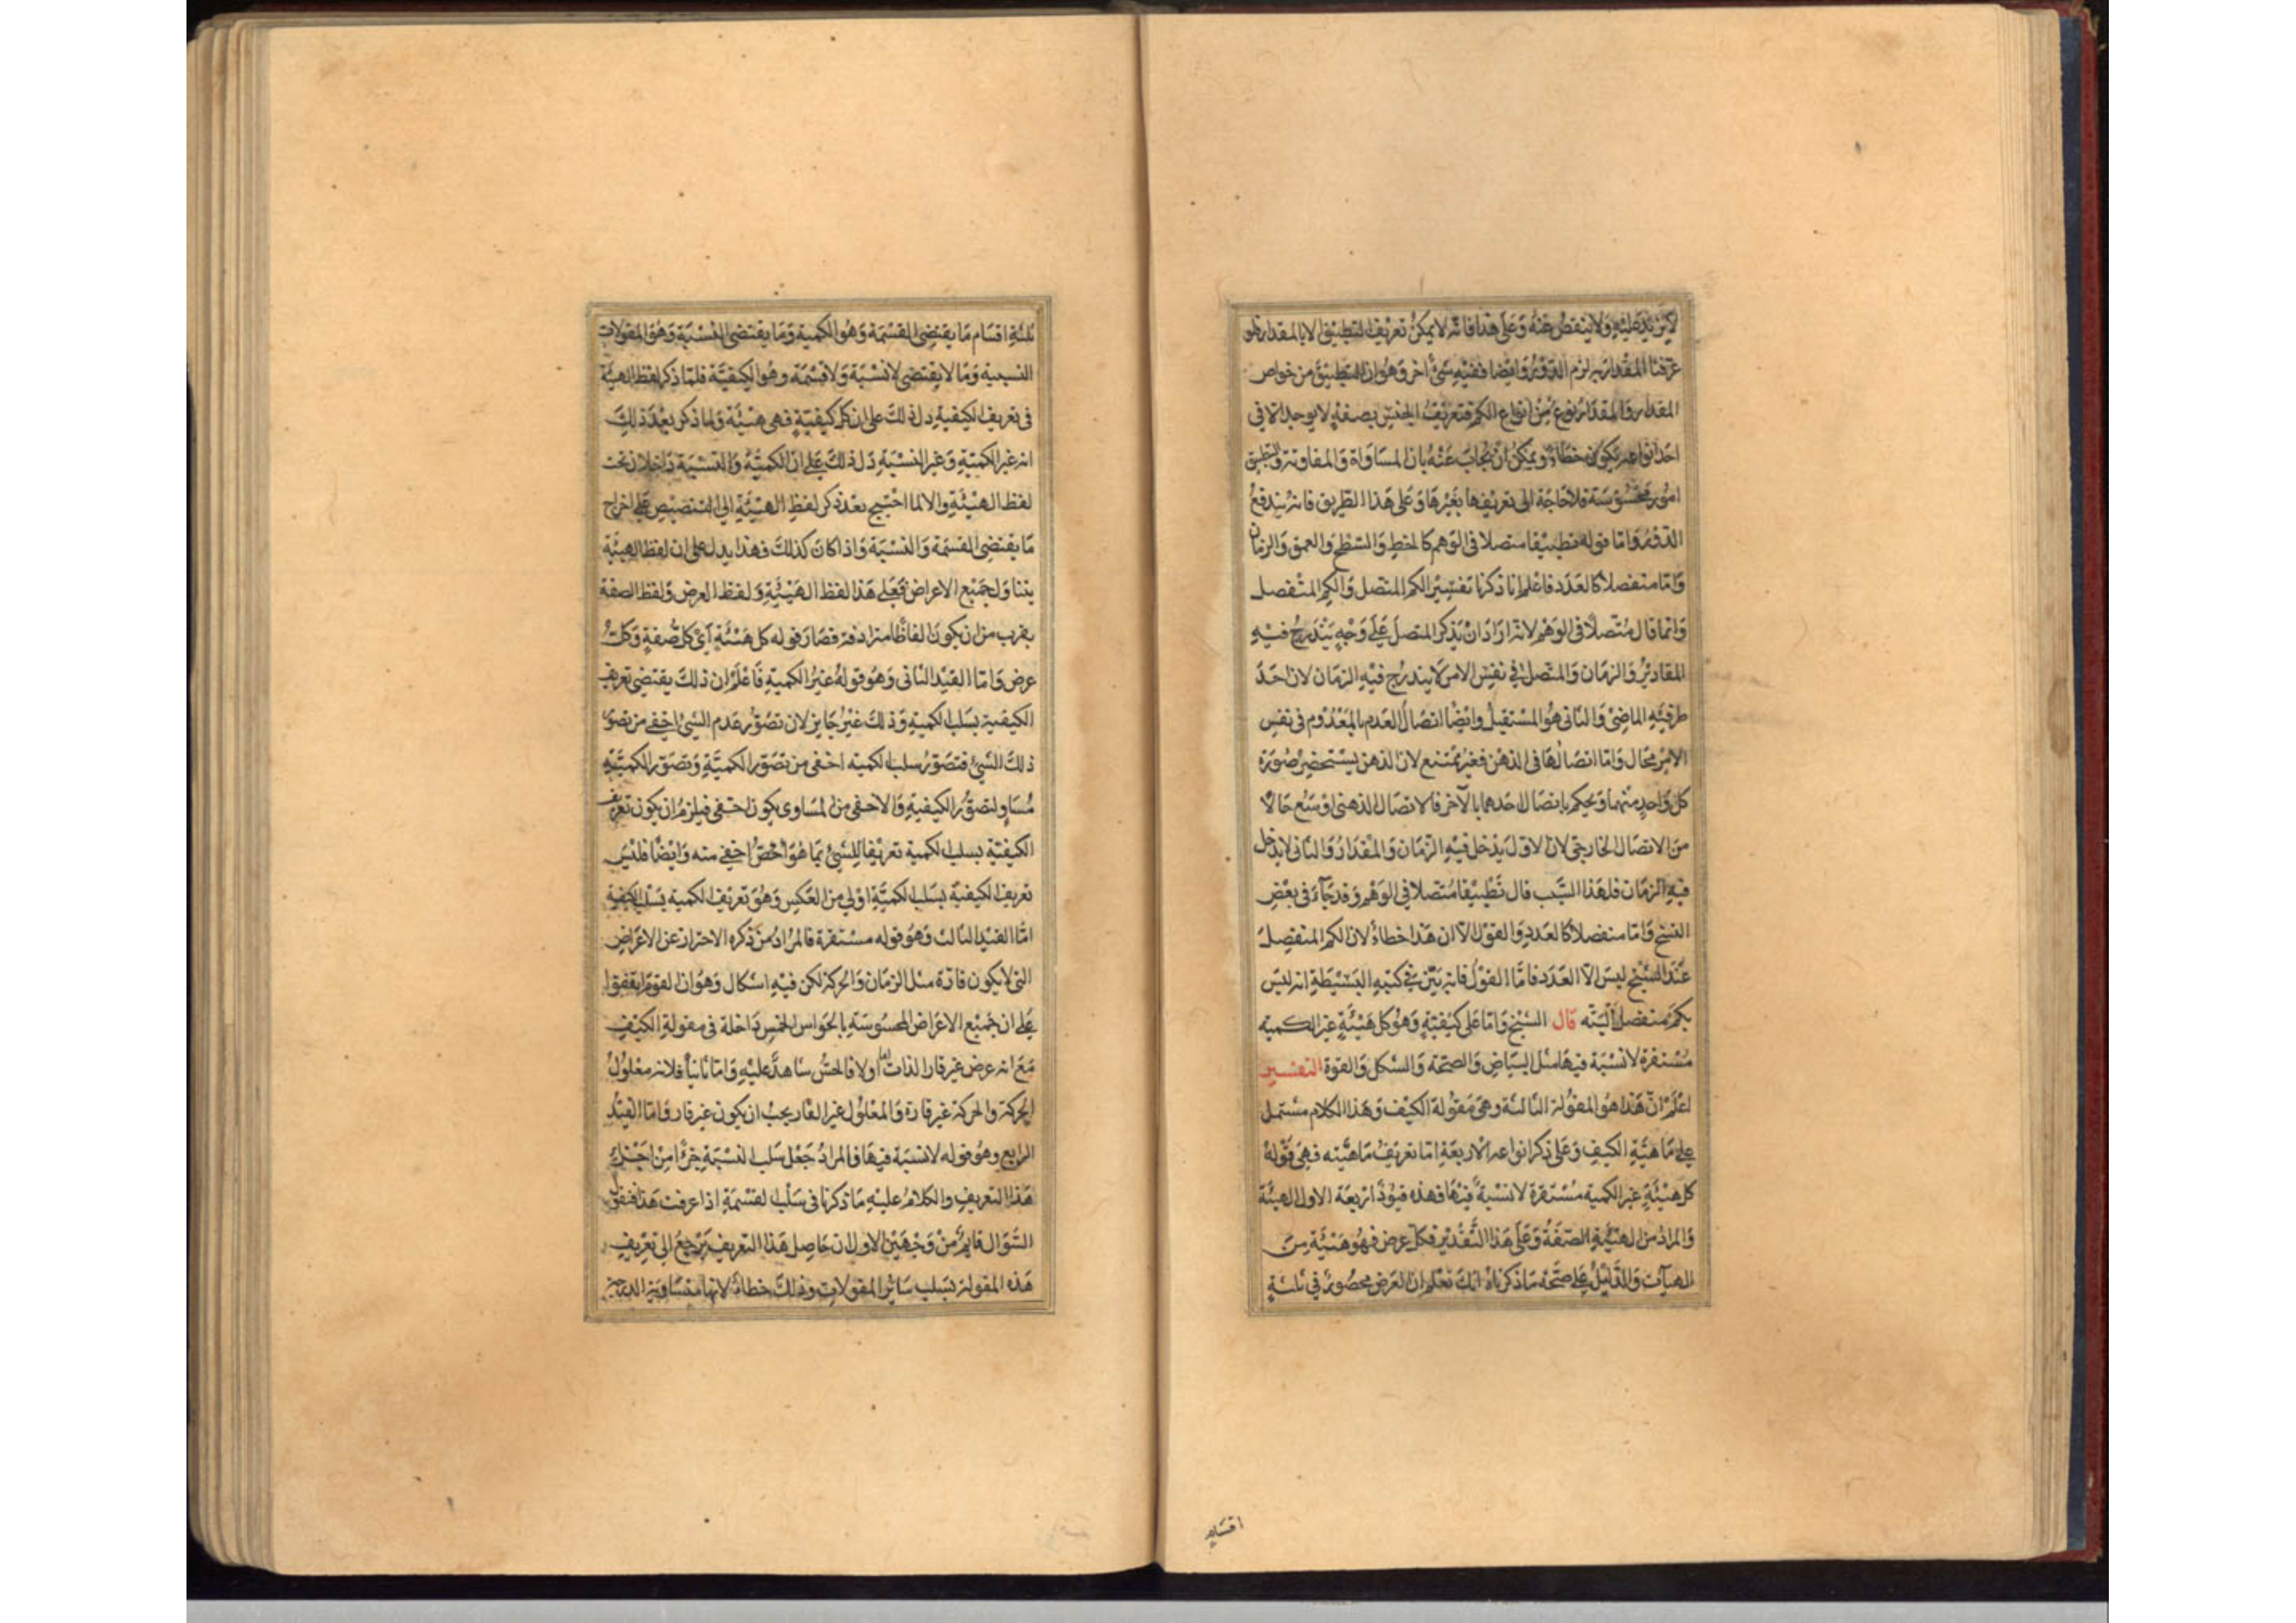 لا يزيد عليه ولا ينقص عنه وعلى هذا فانه لا يمكن تعريف التطبيق الا بالمقدار فلو
عرفنا المقدار به لزم الدور وايضا ففيه شئ اخر وهو ان التطبيق من خواص
المقدار والمقدار نوع من انواع الكم فتعريف الجنس بصفة لا يوجد الا في
احد انواعه يكون خطاء ويمكن ان يجاب عنه بان المساواة والمفاوتة والتطبيق
امور محسوسة فلا حاجة الى تعريفها بغيرها وعلى هذا الطريق فانه يندفع
الدور واما قوله تطبيقا متصلا في الوهم كالخط والسطح والعمق والزمان
واما منفصلا كالعدد فاعلم انا ذكرنا تفسير الكم المتصل والكم المنفصل
وانما قال متصلا في الوهم لانه اراد ان يذكر المتصل على وجه يندرج فيه
المقادير والزمان والمتصل في نفس الامر لا يندرج فيه الزمان لان احد
طرفيه الماضى والثانى هو المستقبل وايضا اتصال العدم بالمعدوم في نفس
الامر محال واما اتصالها فى الذهن فغير ممتنع لان الذهن يستحضر صورة
كل واحد منهما ويحكم باتصال احدهما بالآخر فالاتصال الذهنى اوسع حالا
من الاتصال الخارجى لان الاول يدخل فيه الزمان والمقدار والثانى لا يدخل
فيه الزمان فلهذا السبب قال تطبيقا متصلا في الوهم وقد جآء فى بعض
النسخ واما منفصلا كالعدد والقول الا ان هذا خطاء لان الكم المنفصل
عند الشيخ ليس الا العدد فاما القول فانه بين في كتبه البسيطة انه ليس
بكم منفصل البتة قال الشيخ واما على كيفية وهو كل هيئة غير الكمية
مستقرة لا نسبة فيها مثل البياض والصحة والشكل والقوة التفسير
اعلم ان هذا هو المقولة الثالثة وهى مقولة الكيف وهذا الكلام مشتمل
على ماهية الكيف وعلى ذكر انواعه الاربعة اما تعريف ماهيته فهى قوله
كل هيئة غير الكمية مستقرة لا نسبة فيها فهذه قيود اربعة الاول الهيئة
والمراد من الهيئة الصفة وعلى هذا التقدير فكل عرض فهو هيئة من
الهيآت والدليل على صحة ما ذكرناه انك تعلم ان العرض محصور في ثلثة
اقسام
ثلثة اقسام ما يقتضى القسمة وهو الكمية وما يقتضى النسبة وهو المقولات
النسبية وما لا يقتضى لا نسبة ولا قسمة وهو الكيفية فلما ذكر لفظ الهيئة
فى تعريف الكيفية دل ذلك على ان كل كيفية فهى هيئة ولما ذكر بعد ذلك
انه غير الكمية وغير النسبة دل ذلك على ان الكمية والنسبة داخلان تحت
لفظ الهيئة والا لما احتيج بعد ذكر لفظ الهيئة الى التنصيص على اخراج
ما يقتضى القسمة والنسبة واذا كان كذلك فهذا يدل على ان لفظ الهيئة
يتناول جميع الاعراض فعلى هذا لفظ الهيئة ولفظ العرض ولفظ الصفة
يقرب من ان يكون الفاظا مترادفة فصار قوله كل هيئة اى كل صفة وكل
عرض واما القيد الثانى وهو قوله غير الكمية فاعلم ان ذلك يقتضى تعريف
الكيفية بسلب الكمية وذلك غير جايز لان تصور عدم الشئ اخفى من تصور
ذلك الشئ فتصور سلب الكمية اخفى من تصور الكمية وتصور الكمية
مساو لتصور الكيفية والاخفى من المساوى يكون اخفى فيلزم ان يكون تعريف
الكيفية بسلب الكمية تعريفا للشئ بما هو اخص اخفى منه وايضا فليس
تعريف الكيفية بسلب الكمية اولى من العكس وهو تعريف الكمية بسلب الكيفية
اما القيد الثالث وهو قوله مستقرة فالمراد من ذكره الاحتراز عن الاعراض
التى لا يكون قارة مثل الزمان والحركة لكن فيه اشكال وهو ان القوم اتفقوا
على ان جميع الاعراض المحسوسة بالحواس الخمس داخلة فى مقولة الكيف
مع انه عرض غير قار الذات اما اولا فالحس شاهد عليه واما ثانيا فلانه معلول
الحركة والحركة غير قارة والمعلول غير القار يجب ان يكون غير قار واما القيد
الرابع وهو قوله لا نسبة فيها فالمراد جعل سلب النسبة جزءا من اجزاء
هذا التعريف والكلام عليه ما ذكرنا فى سلب القسمة اذا عرفت هذا فنقول
السؤال قايم من وجهين الاول ان حاصل هذا التعريف يرجع الى تعريف
هذه المقولة بسلب سائر المقولات وذلك خطاء لانها متساوية الدرجة